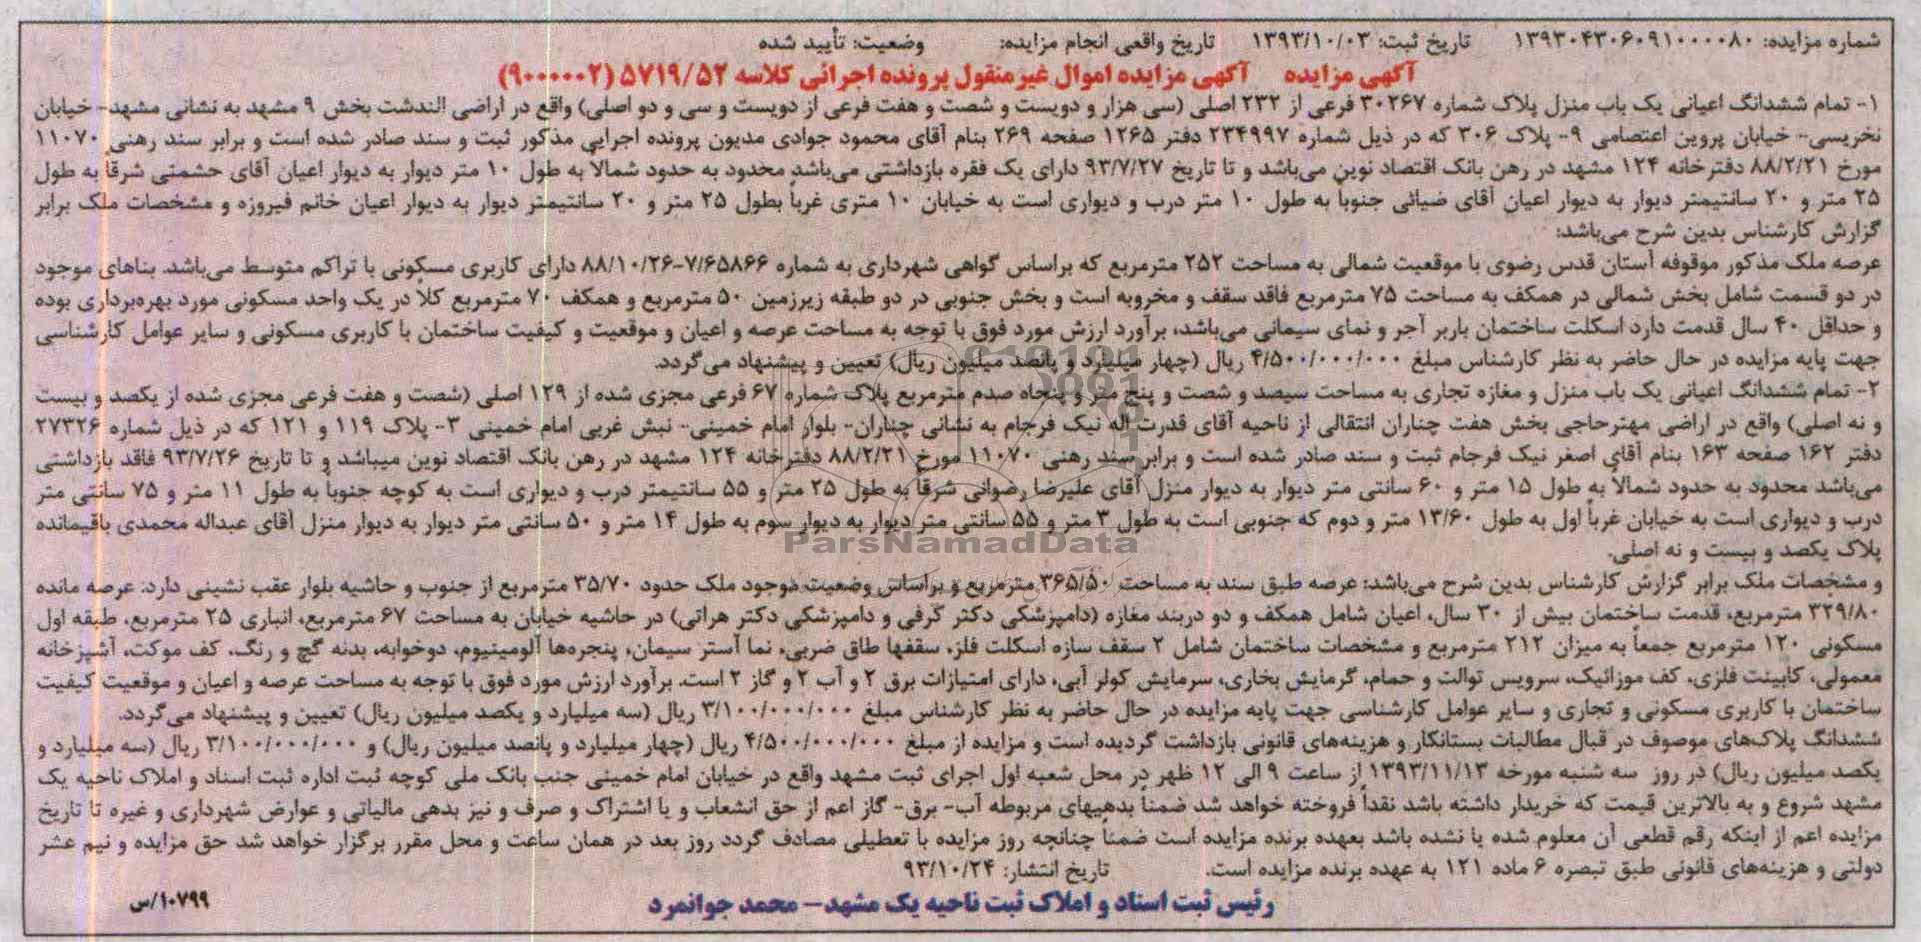 شماره مزایده: ۱۳۹۳۰۴۳۰۶۰۹۱۰۰۰۰۸۰ تاریخ ثبت: ۱۳۹۳/۱۰/۰۳ تاریخ واقعی انجام مزایده: وضعیت: تأیید شده
آگهی مزایده آگهی مزایده اموال غیرمنقول پرونده اجرائی کلاسه ۵۷۱۹/۵۲ (۹۰۰۰۰۰۲)
۱- تمام ششدانگ اعیانی یک باب منزل پلاک شماره ۳۰۲۶۷ فرعی از ۲۳۲ اصلی (سی هزار و دویست و شصت و هفت فرعی از دویست و سی و دو اصلی) واقع در اراضی الندشت بخش ۹ مشهد به نشانی مشهد- خیابان
نخریسی- خیابان پروین اعتصامی ۹- پلاک ۳۰۶ که در ذیل شماره ۲۳۴۹۹۷ دفتر ۱۲۶۵ صفحه ۲۶۹ بنام آقای محمود جوادی مدیون پرونده اجرایی مذکور ثبت و سند صادر شده است و برابر سند رهنی ۱۱۰۷۰
مورخ ۸۸/۲/۲۱ دفترخانه ۱۲۴ مشهد در رهن بانک اقتصاد نوین می‌باشد و تا تاریخ ۹۳/۷/۲۷ دارای یک فقره بازداشتی می‌باشد محدود به حدود شمالا به طول ۱۰ متر دیوار به دیوار اعیان آقای حشمتی شرقاً به طول
۲۵ متر و ۲۰ سانتیمتر دیوار به دیوار اعیان آقای ضیائی جنوباً به طول ۱۰ متر درب و دیواری است به خیابان ۱۰ متری غرباً بطول ۲۵ متر و ۲۰ سانتیمتر دیوار به دیوار اعیان خانم فیروزه و مشخصات ملک برابر
گزارش کارشناس بدین شرح می‌باشد:
عرصه ملک مذکور موقوفه آستان قدس رضوی با موقعیت شمالی به مساحت ۲۵۲ مترمربع که براساس گواهی شهرداری به شماره ۷/۶۵۸۶۶-۸۸/۱۰/۲۶ دارای کاربری مسکونی با تراکم متوسط می‌باشد. بناهای موجود
در دو قسمت شامل بخش شمالی در همکف به مساحت ۷۵ مترمربع فاقد سقف و مخروبه است و بخش جنوبی در دو طبقه زیرزمین ۵۰ مترمربع و همکف ۷۰ مترمربع کلاً در یک واحد مسکونی مورد بهره‌برداری بوده
و حداقل ۴۰ سال قدمت دارد اسکلت ساختمان باربر آجر و نمای سیمانی می‌باشد، برآورد ارزش مورد فوق با توجه به مساحت عرصه و اعیان و موقعیت و کیفیت ساختمان با کاربری مسکونی و سایر عوامل کارشناسی
جهت پایه مزایده در حال حاضر به نظر کارشناس مبلغ ۴/۵۰۰/۰۰۰/۰۰۰ ریال (چهار میلیارد و پانصد میلیون ریال) تعیین و پیشنهاد می‌گردد.
۲- تمام ششدانگ اعیانی یک باب منزل و مغازه تجاری به مساحت سیصد و شصت و پنج متر و پنجاه صدم مترمربع پلاک شماره ۶۷ فرعی مجزی شده از ۱۲۹ اصلی (شصت و هفت فرعی مجزی شده از یکصد و بیست
و نه اصلی) واقع در اراضی مهترحاجی بخش هفت چناران انتقالی از ناحیه آقای قدرت اله نیک فرجام به نشانی چناران- بلوار امام خمینی- نبش غربی امام خمینی ۳- پلاک ۱۱۹ و ۱۲۱ که در ذیل شماره ۲۷۳۲۶
دفتر ۱۶۲ صفحه ۱۶۳ بنام آقای اصغر نیک فرجام ثبت و سند صادر شده است و برابر سند رهنی ۱۱۰۷۰ مورخ ۸۸/۲/۲۱ دفترخانه ۱۲۴ مشهد در رهن بانک اقتصاد نوین میباشد و تا تاریخ ۹۳/۷/۲۶ فاقد بازداشتی
می‌باشد محدود به حدود شمالاً به طول ۱۵ متر و ۶۰ سانتی متر دیوار به دیوار منزل آقای علیرضا رضوانی شرقاً به طول ۲۵ متر و ۵۵ سانتیمتر درب و دیواری است به کوچه جنوباً به طول ۱۱ متر و ۷۵ سانتی متر
درب و دیواری است به خیابان غرباً اول به طول ۱۳/۶۰ متر و دوم که جنوبی است به طول ۳ متر و ۵۵ سانتی متر دیوار به دیوار سوم به طول ۱۴ متر و ۵۰ سانتی متر دیوار به دیوار منزل آقای عبداله محمدی باقیمانده
پلاک یکصد و بیست و نه اصلی.
و مشخصات ملک برابر گزارش کارشناس بدین شرح می‌باشد: عرصه طبق سند به مساحت ۳۶۵/۵۰ مترمربع و براساس وضعیت موجود ملک حدود ۳۵/۷۰ مترمربع از جنوب و حاشیه بلوار عقب نشینی دارد. عرصه مانده
۳۲۹/۸۰ مترمربع، قدمت ساختمان بیش از ۳۰ سال، اعیان شامل همکف و دو دربند مغازه (دامپزشکی دکتر گرفی و دامپزشکی دکتر هراتی) در حاشیه خیابان به مساحت ۶۷ مترمربع، انباری ۲۵ مترمربع، طبقه اول
مسکونی ۱۲۰ مترمربع جمعاً به میزان ۲۱۲ مترمربع و مشخصات ساختمان شامل ۲ سقف سازه اسکلت فلز، سقفها طاق ضربی، نما آستر سیمان، پنجره‌ها آلومینیوم، دوخوابه، بدنه گچ و رنگ، کف موکت، آشپزخانه
معمولی، کابینت فلزی، کف موزائیک، سرویس توالت و حمام، گرمایش بخاری، سرمایش کولر آبی، دارای امتیازات برق ۲ و آب ۲ و گاز ۲ است. برآورد ارزش مورد فوق با توجه به مساحت عرصه و اعیان و موقعیت کیفیت
ساختمان با کاربری مسکونی و تجاری و سایر عوامل کارشناسی جهت پایه مزایده در حال حاضر به نظر کارشناس مبلغ ۳/۱۰۰/۰۰۰/۰۰۰ ریال (سه میلیارد و یکصد میلیون ریال) تعیین و پیشنهاد می‌گردد.
ششدانگ پلاک‌های موصوف در قبال مطالبات بستانکار و هزینه‌های قانونی بازداشت گردیده است و مزایده از مبلغ ۴/۵۰۰/۰۰۰/۰۰۰ ریال (چهار میلیارد و پانصد میلیون ریال) و ۳/۱۰۰/۰۰۰/۰۰۰ ریال (سه میلیارد و
یکصد میلیون ریال) در روز سه شنبه مورخه ۱۳۹۳/۱۱/۱۳ از ساعت ۹ الی ۱۲ ظهر در محل شعبه اول اجرای ثبت مشهد واقع در خیابان امام خمینی جنب بانک ملی کوچه ثبت اداره ثبت اسناد و املاک ناحیه یک
مشهد شروع و به بالاترین قیمت که خریدار داشته باشد نقداً فروخته خواهد شد ضمناً بدهیهای مربوطه آب- برق- گاز اعم از حق انشعاب و یا اشتراک و صرف و نیز بدهی مالیاتی و عوارض شهرداری و غیره تا تاریخ
مزایده اعم از اینکه رقم قطعی آن معلوم شده یا نشده باشد بعهده برنده مزایده است ضمناً چنانچه روز مزایده با تعطیلی مصادف گردد روز بعد در همان ساعت و محل مقرر برگزار خواهد شد حق مزایده و نیم عشر
دولتی و هزینه‌های قانونی طبق تبصره ۶ ماده ۱۲۱ به عهده برنده مزایده است. تاریخ انتشار: ۹۳/۱۰/۲۴
رئیس ثبت اسناد و املاک ثبت ناحیه یک مشهد- محمد جوانمرد
۱۰۷۹۹/س
ParsNamadData